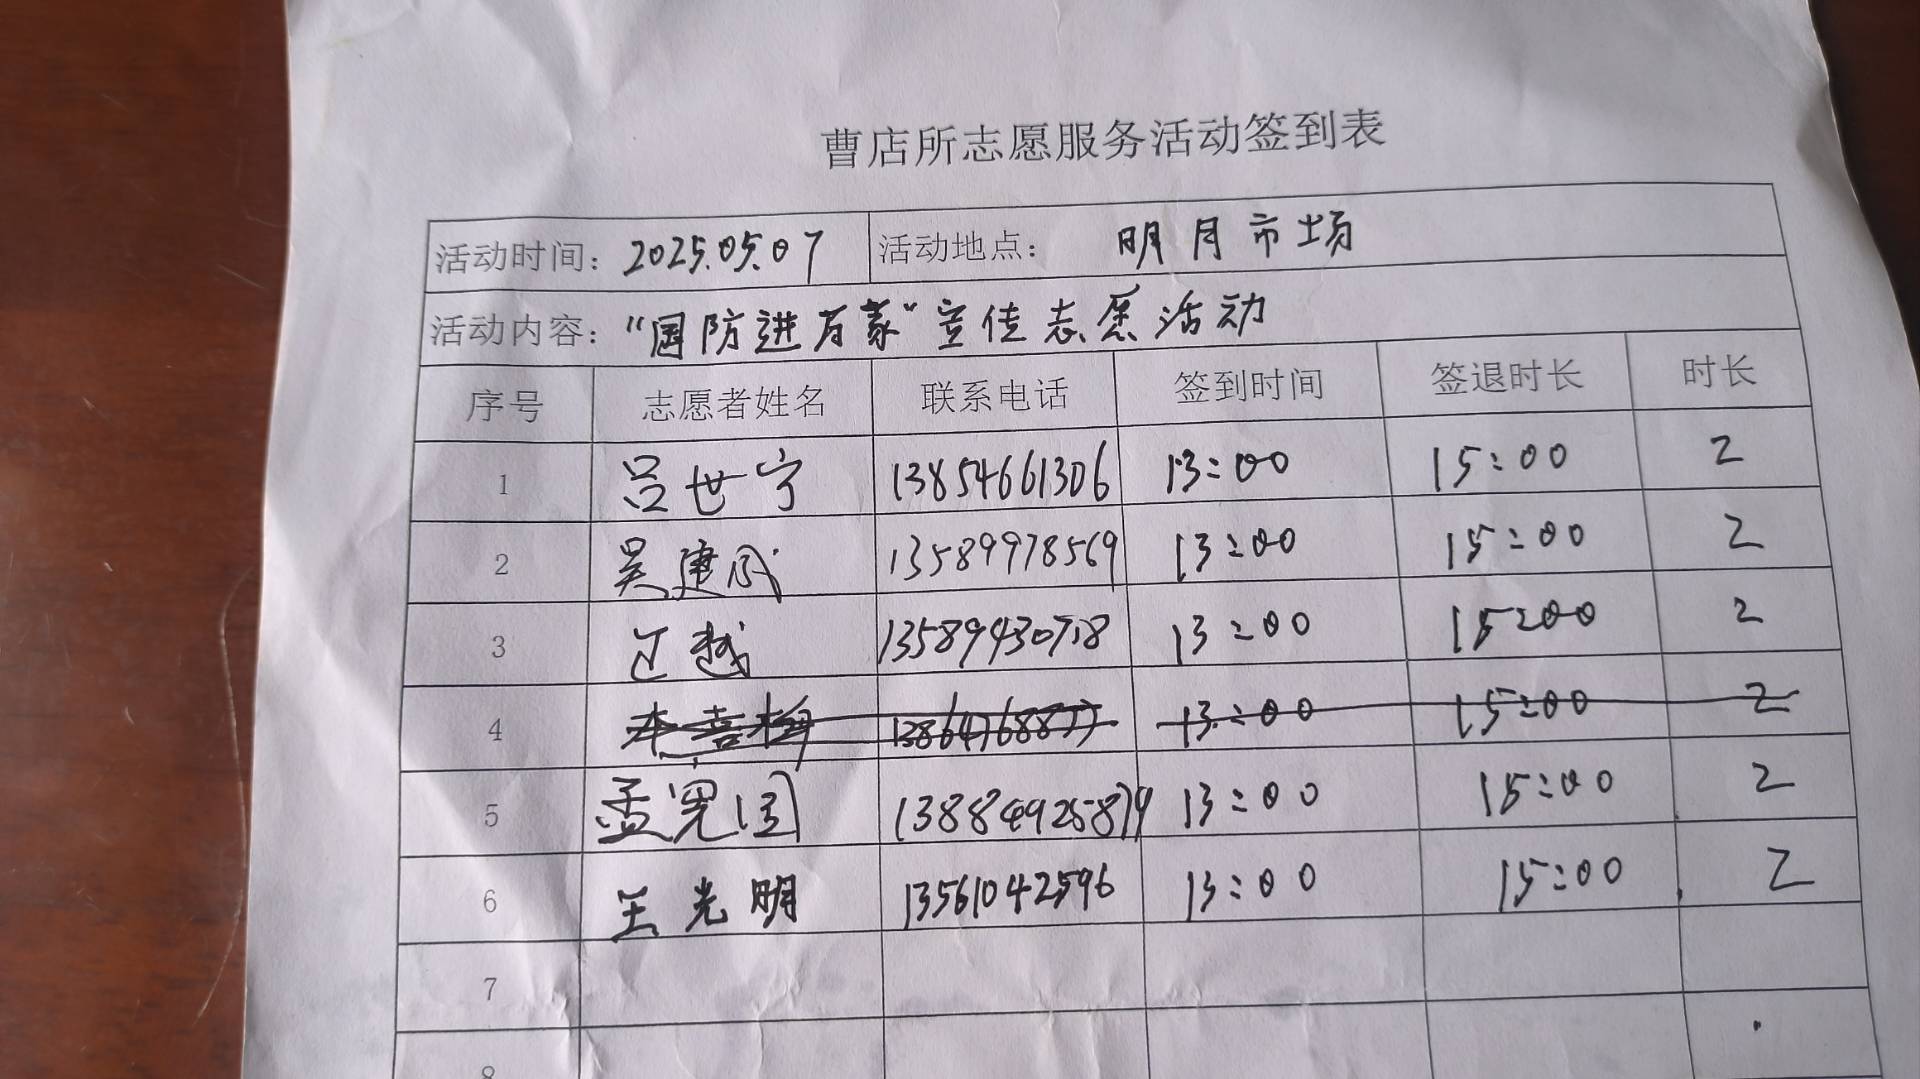 曹店所志愿服务活动签到表
活动时间：2025.05.07 活动地点： 明月市场
活动内容：“国防进万家”宣传志愿活动
序号 志愿者姓名 联系电话 签到时间 签退时长 时长
1 吕世宁 13854661306 13:00 15:00 2
2 吴建成 13589978569 13:00 15:00 2
3 越 13:00 15:00 2
4 13:00 15:00 2
5 孟宪国 13884925879 13:00 15:00 2
6 王光明 13561042596 13:00 15:00 2
7
8